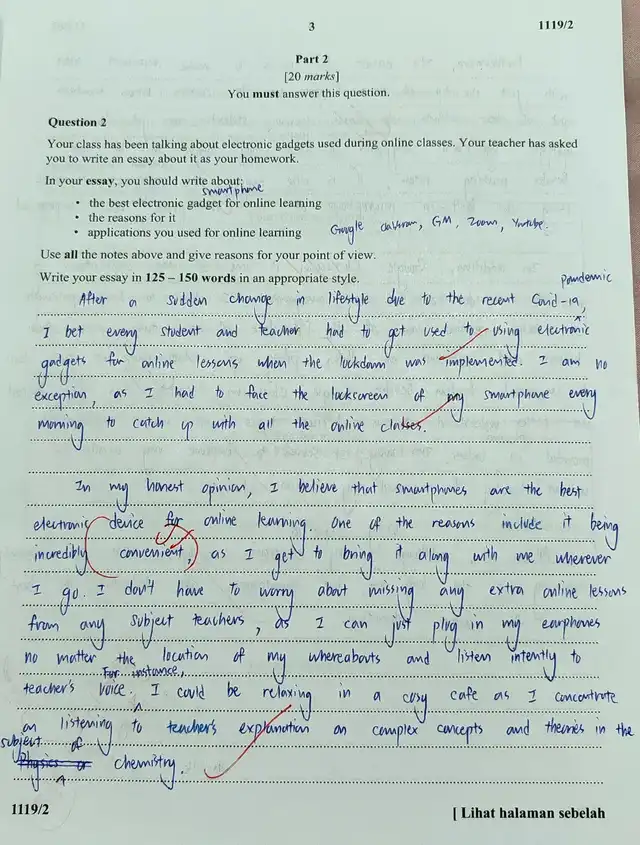 3
1119/2
Part 2
[20 marks]
You must answer this question.
Question 2
Your class has been talking about electronic gadgets used during online classes. Your teacher has asked
you to write an essay about it as your homework.
In your essay, you should write about:
smartphone
• the best electronic gadget for online learning
• the reasons for it
• applications you used for online learning
Google classroom, GM, Zoom, Youtube.
Use all the notes above and give reasons for your point of view.
Write your essay in 125 – 150 words in an appropriate style.
pandemic
After a sudden change in lifestyle due to the recent Covid-19,
I bet every student and teacher had to get used to using electronic
gadgets for online lessons when the lockdown was implemented. I am no
exception, as I had to face the lockscreen of my smartphone every
morning to catch up with all the online classes.
In my honest opinion, I believe that smartphones are the best
electronic device for online learning. One of the reasons include it being
incredibly convenient, as I get to bring it along with me wherever
I go. I don't have to worry about missing any extra online lessons
from any subject teachers, as I can just plug in my earphones
no matter the location of my whereabouts and listen intently to
For instance,
teacher's voice. I could be relaxing in a cosy cafe as I concentrate
on listening to teacher's explanation on complex concepts and theories in the
subject of
Physics or chemistry.
1119/2
[ Lihat halaman sebelah